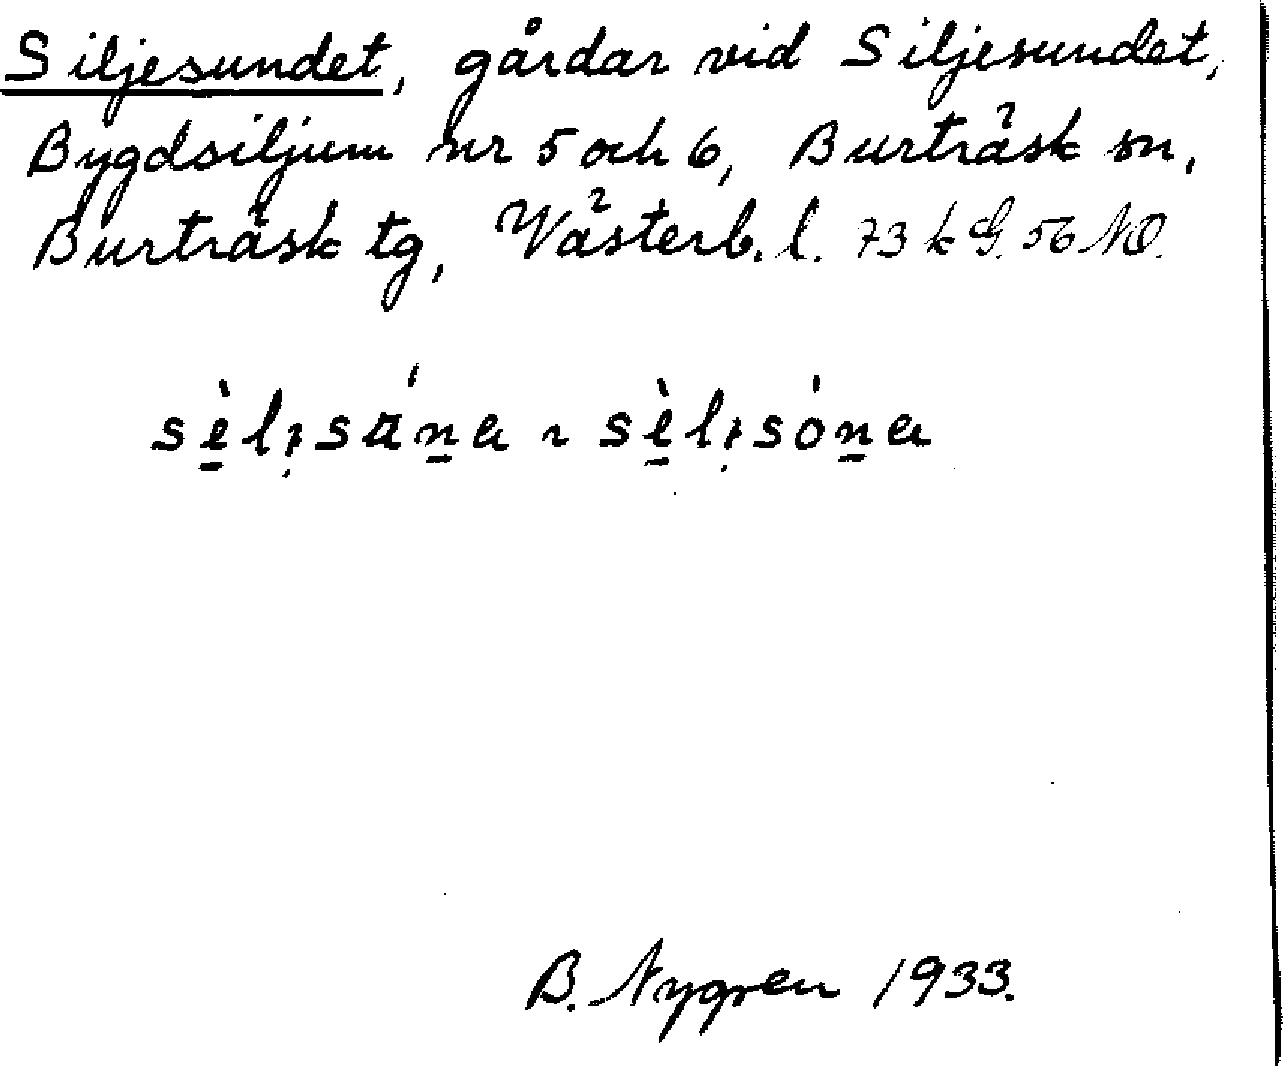 Siljesundet, gårdar vid Siljesundet,
Bygdsiljum nr 5 och 6, Burträsk sn,
Burträsk tg, Västerb. l. 73 k G. 56 NO.
B. Nygren 1933.